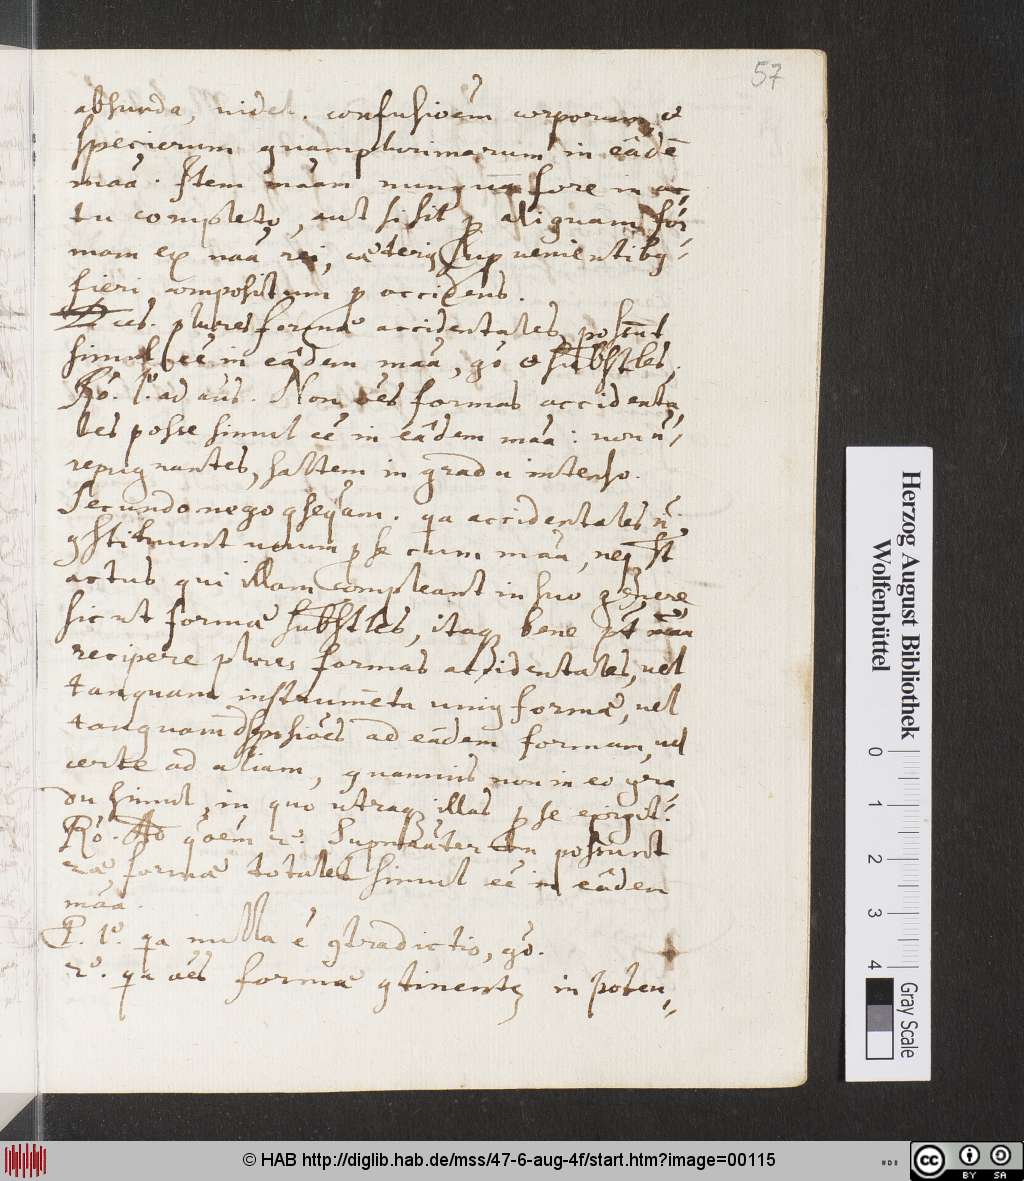 57
absurda, videl. confusioēm corporum, &
specierum quamplurimarum in eādē
maā. Item maām nunquā fore in ac,,
tu completo, aut si sit p aliquam for,,
mam ex naā rei, cæteris supvenientibus
fieri compositum p accidens.
Dices. plures formæ accidentales possūt
simul eē in eâdem maā, gō & subst̄les.
Rō. 1º. ad ans. Non oēs formas accidenta,,
les posse simul eē in eâdem maā: non n̄,,
repugnantes, saltem in gradu intenso.
Secundo nego 9seqām. qa accidentales n̄
9stituunt unum p se cum maā, neq st̄
actus qui illam compleant in suo genere
sicut formæ subst̄les, itaq bene pt̄ maā
recipere plures formas accidentales, vel
tanquam instrumēta unius formæ, vel
tanquam dispsiōēs ad eâdem formam, vel
certe ad aliam, quamvis non in eo gra,,
du simul, in quo utraq illas p se exigit.
Rō. Ad qōēm 2ª. Supnaāter possunt
2æ formæ totales simul eē in eâdem
maā.
P. 1º. qa nulla ē 9tradictio, gō.
2º. qa oēs formæ 9tinentes in poten,,
Herzog August Bibliothek
Wolfenbüttel
0 1 2 3 4
Gray Scale
© HAB http://diglib.hab.de/mss/47-6-aug-4f/start.htm?image=00115
cc BY SA